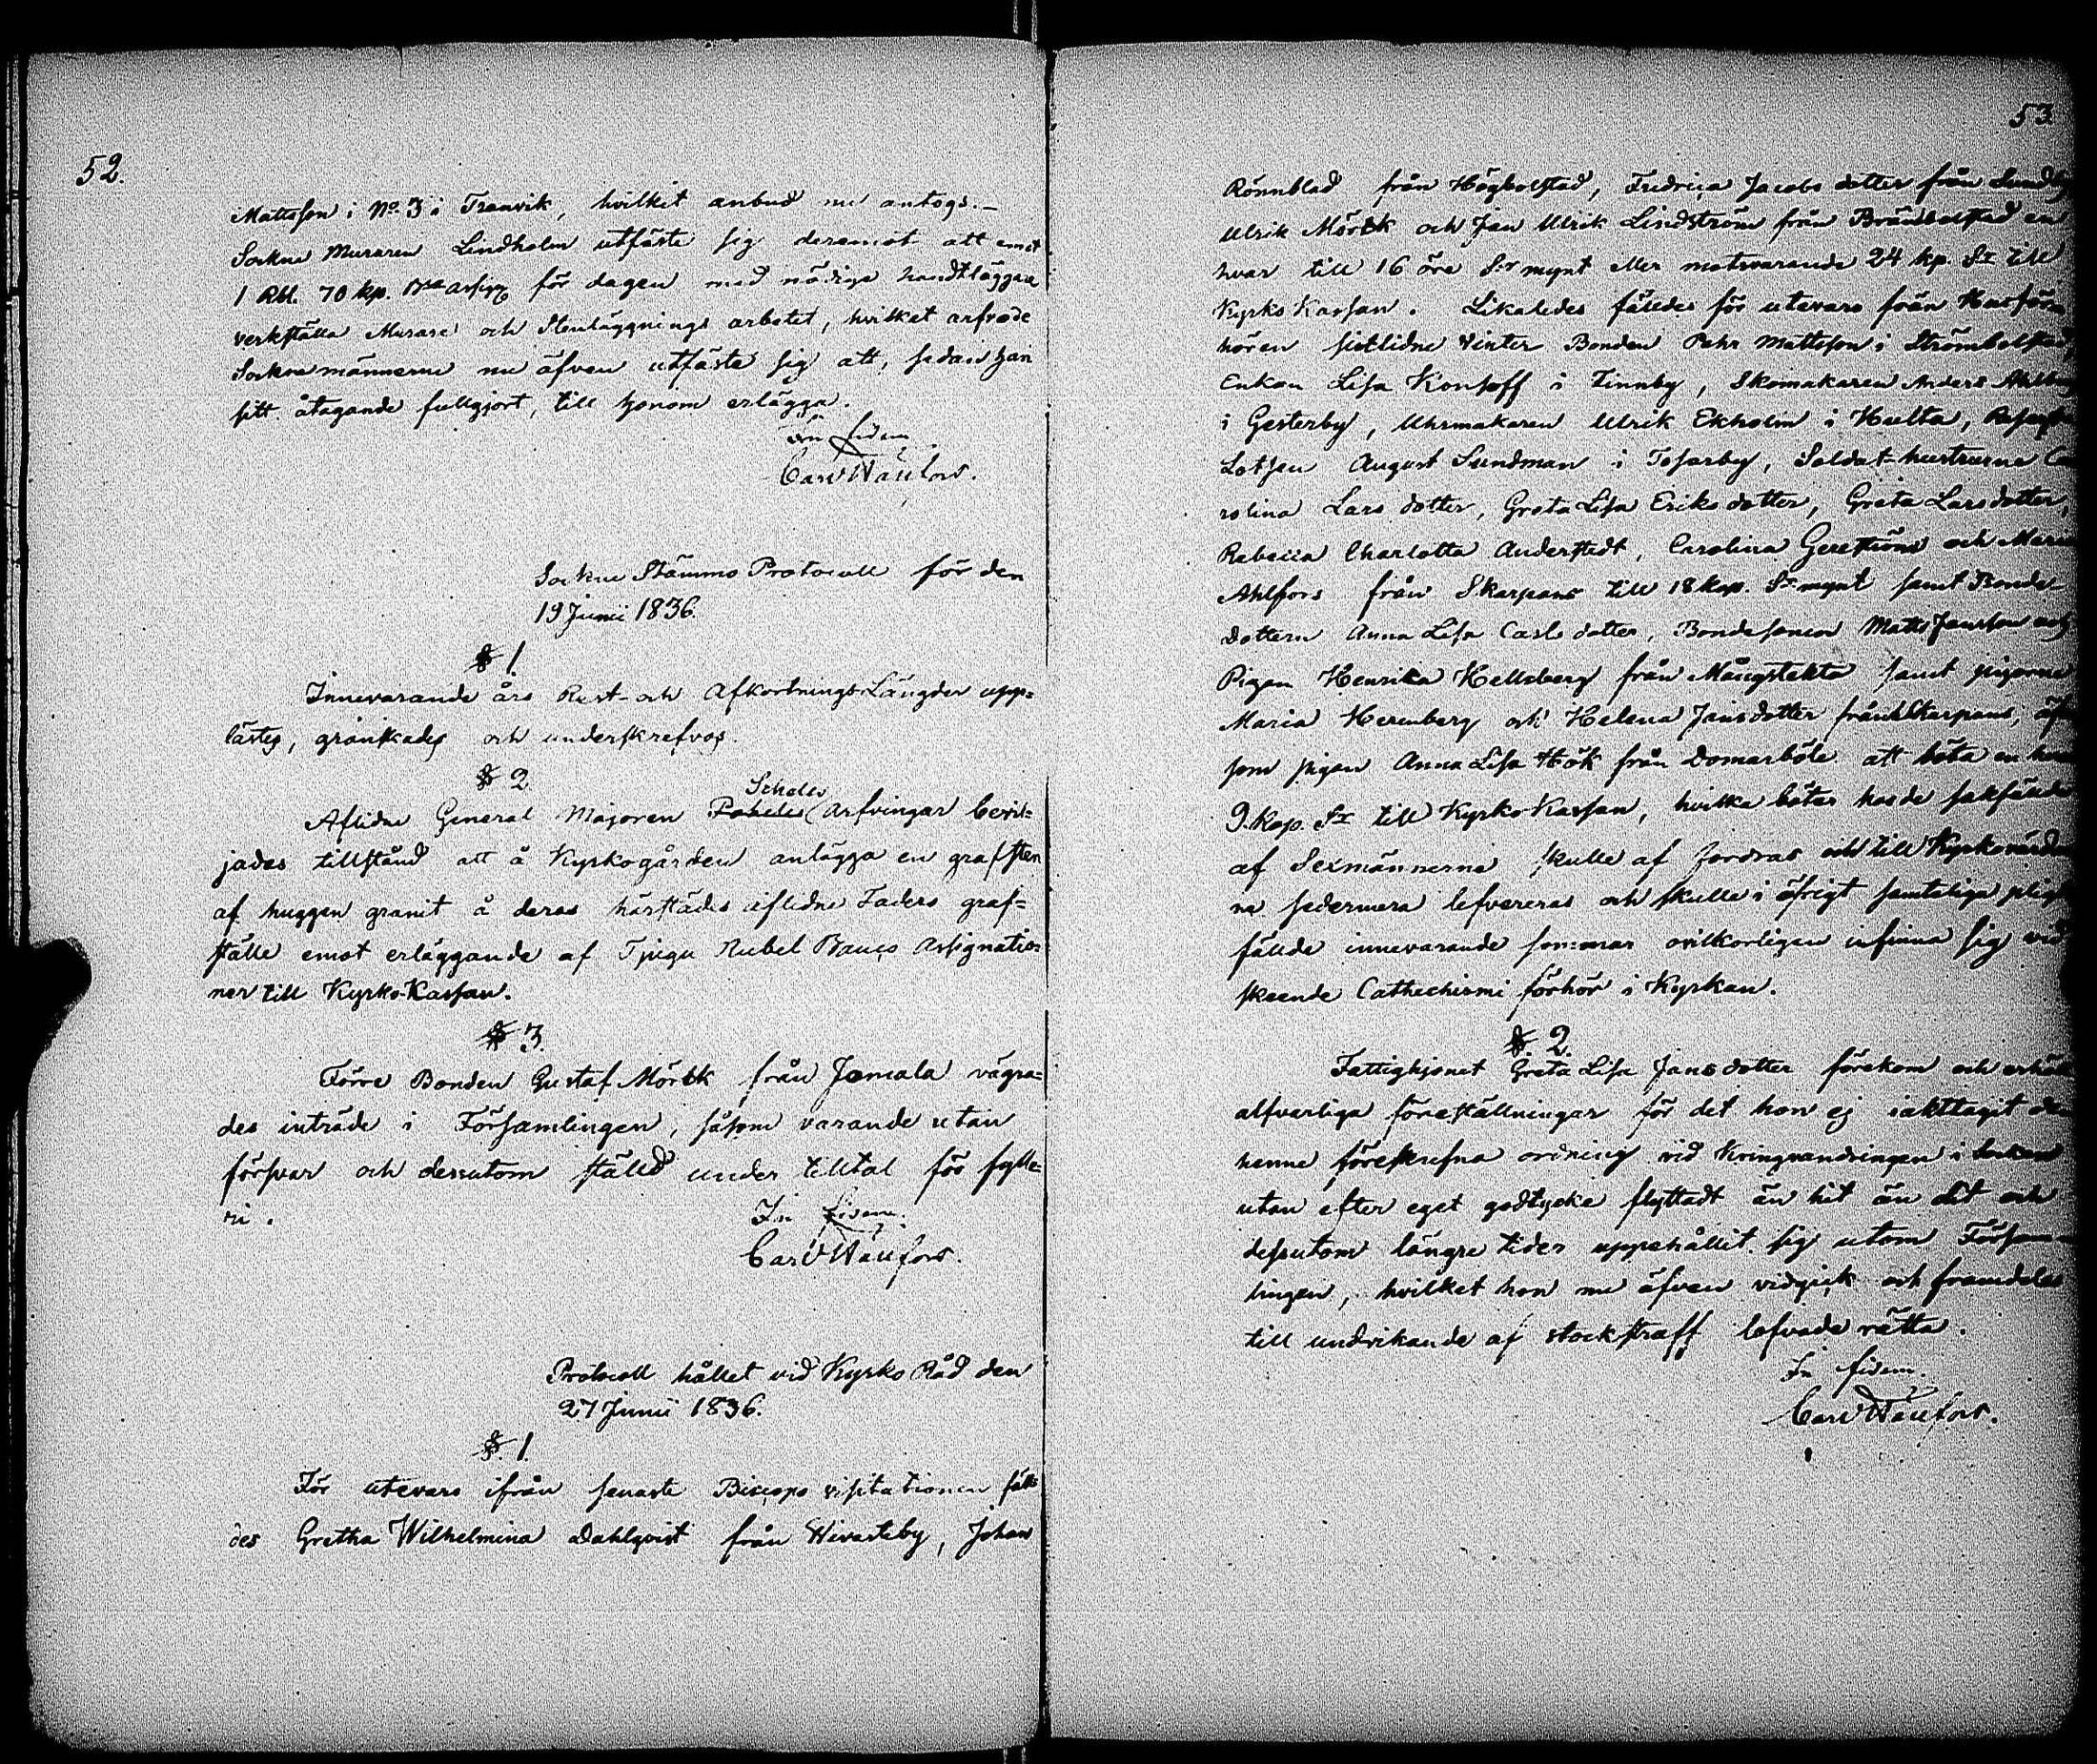 52.
Mattsson i No. 3 i Tranvik, hvilket anbud nu antogs.—
Sockne Muraren Lindholm utfäste sig deremot att emot
1 Rbl. 70 kp. B:co assign för dagen med nödige handtläggare
verkställa Murare och Stenläggnings arbetet, hvilket arfvode
Sockne männerne nu äfven utfäste sig att, sedan han
sitt åtagande fullgjort, till honom erlägga.
In fidem
Carl
Sockne Stämmo Protocoll för den
19 Junii 1836.
§ 1.
Innevarande års Rust- och Afkortnings Längder upp=
lästes, granskades och underskrefvos.
§ 2.
Schulis
Aflidne General Majoren arfvingar bevil=
jades tillstånd att å Kyrkogården anlägga en grafsten
af huggen granit å deras härstädes aflidne Faders graf=
ställe emot erläggande af Tjugu Rubel Banco Assignatio=
ner till Kyrko-Kassan.
§ 3.
Förre Bonden Gustaf Mörck från Jomala vägra=
des inträde i Församlingen, såsom varande utan
försvar och dessutom ställd under tilltal för fylle=
ri.
In fidem.
Carl
Protocoll hållet vid Kyrko Råd den
27 Junii 1836.
§. 1.
För utevaro ifrån senaste Biscops visitationen fäll=
des Gretha Wilhelmina Dahlqvist från Hivasteby, Johan
53
Rönnblad från Högbolstad, Fredrica Jacobs dotter från
Ulrik Mörck och Jan Ulrik Lindström från Brändbolstad en
hvar till 16 öre S:r mynt eller motsvarande 24 kp. S:r till
Kyrko Kassan. Likaledes fälldes för utevaro från Husför=
hören sistlidne Vinter Bonden Pehr Mattsson i Strömbolstad,
Enkan Lisa Konsoff i Finnby, Skomakaren Anders
i Gesterby, Uhrmakaren Ulrik Ekholm i Hulta,
Lotsen August Sundman i Tosarby, Soldat-hustrurne Ca
rolina Lars dotter, Greta Lisa Eriks dotter, Greta Larsdotter,
Rebecca Charlotta Anderstedt, Carolina Gereström och Maria
Ahlfors från Skarpans till 18 kop. S:r mynt samt Bonde-
dottern Anna Lisa Carls dotter, Bondesonen Matts Jansson och
Pigan Henrika Hellsberg från Mångstekta samt pigorne
Maria Herenberg och Helena Jansdotter från Skarpans, äfven
som pigan Anna Lisa Hök från Domarböle att böta en hvar
9. kop. S:r till Kyrko Kassan, hvilka böter hos de sakfällde
af Sexmännerne skulle af fordras och till Kyrkovärdar
ne sedermera lefvereras och skulle i öfrigt samteliga
fällde innevarande sommar ovilkorligen infinna sig vid
skeende Cathechismi förhör i Kyrkan.
§. 2.
Fattighjonet Greta Lisa Jans dotter förekom och erhöll
alfvarliga föreställningar för det hon ej iakttagit den
henne föreskrefna ordning vid Kringvandringen i Socken
utan efter eget godtycke flyttadt än hit än dit och
dessutom längre tider uppehållit sig utom Försam
lingen, hvilket hon nu äfven vidgick och framdeles
till undvikande af stockstraff lofvade rätta.
In fidem.
Carl